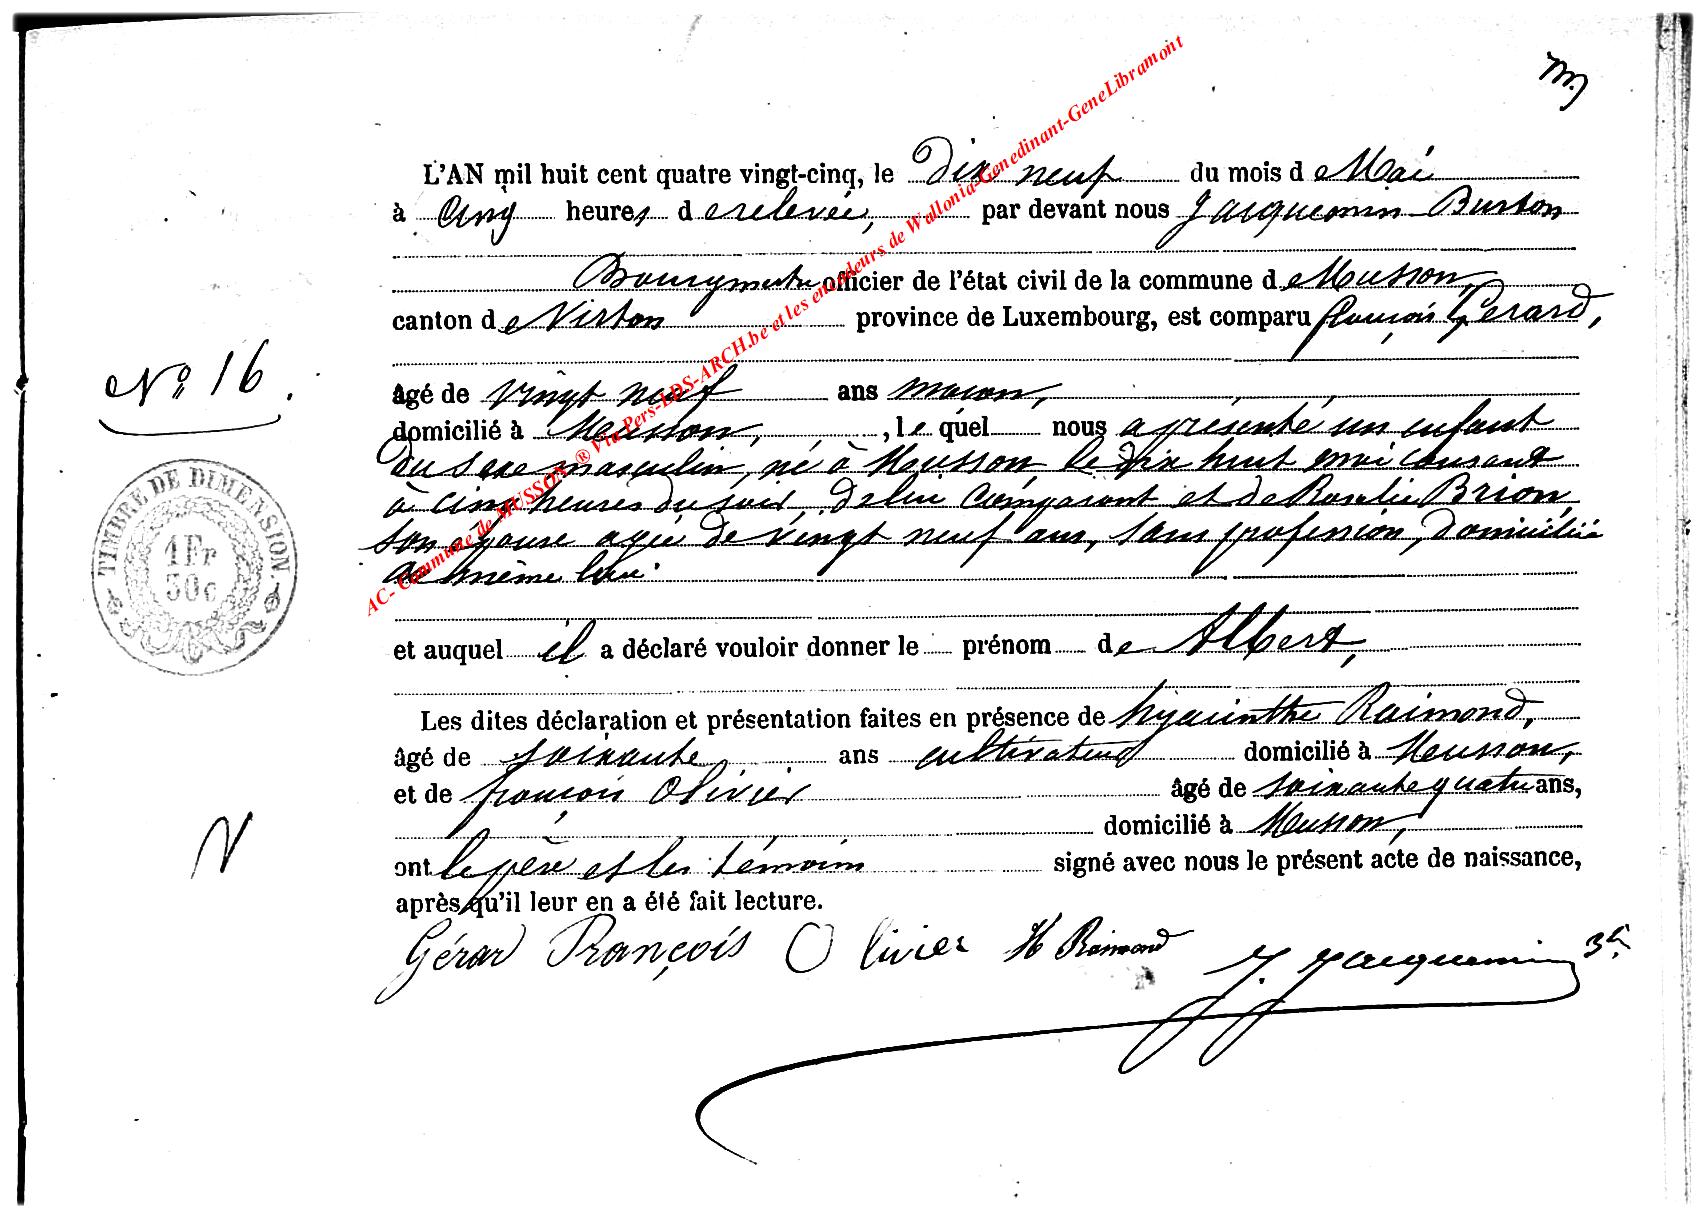 m.
L'AN mil huit cent quatre vingt-cinq, le Dix neuf du mois d e Mai
à Cinq heures d e relevée, par devant nous Jacquemin Burton
Bourgmestre officier de l'état civil de la commune d e Musson,
canton d e Virton province de Luxembourg, est comparu françois Gerard,
N° 16.
âgé de vingt neuf ans macon,
domicilié à Musson, , l e quel nous a présenté un enfant
du sexe masculin, né à Musson le dix huit mai courant
à cinq heures du soir, de lui comparant et de Rosalie Brion,
son épouse agée de vingt neuf ans, sans profession, domiciliée
au même lieu.
TIMBRE DE DIMENSION.
1 Fr
50 c
et auquel il a déclaré vouloir donner le prénom de Albert,
Les dites déclaration et présentation faites en présence de hyacinthe Raimond,
âgé de soixante ans cultivateur domicilié à Musson,
et de françois Olivier âgé de soixante quatre ans,
domicilié à Musson,
ont le père et les témoins signé avec nous le présent acte de naissance,
après qu'il leur en a été fait lecture.
Gérard François Olivier H Raimond J. Jacquemin
AC- Commune de MUSSON ® Via Pers-LDS-ARCH.be et les encodeurs de Wallonia-Genedinant-GeneLibramont